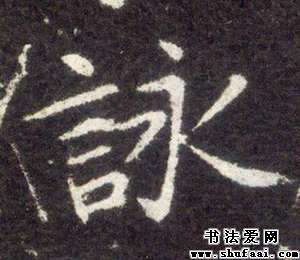 詠
书法爱网
www.shufaai.com